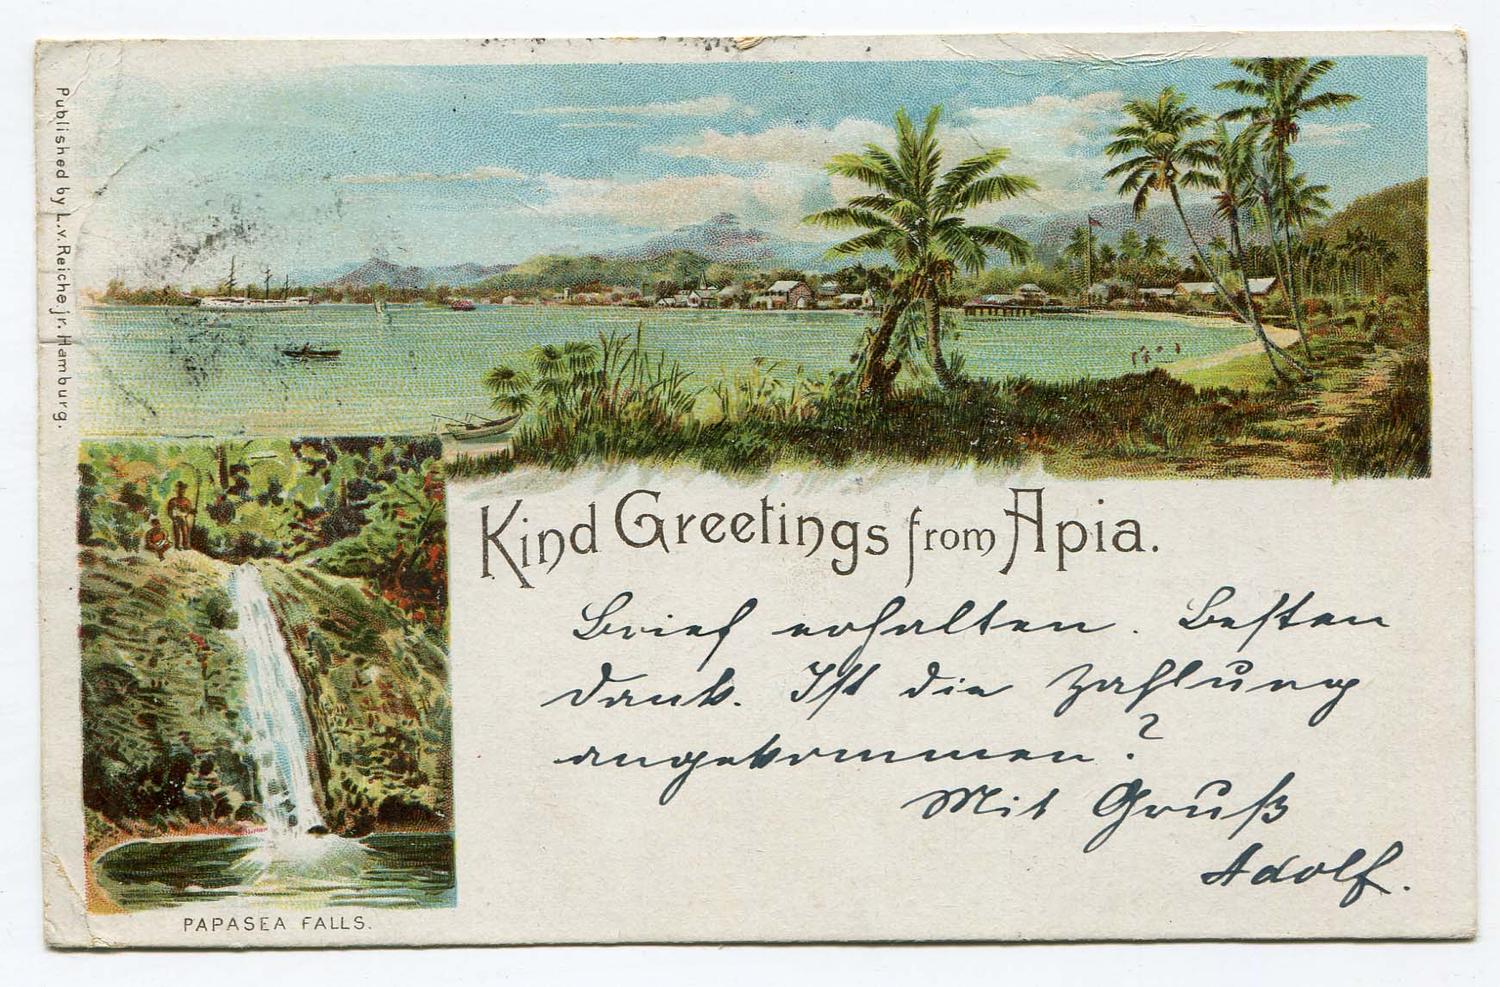 Published by L.v.Reiche jr. Hamburg.
Kind Greetings from Apia.
Brief erhalten. Besten
Dank. Ist die Zahlung
angekommen?
Mit Gruß
Adolf.
PAPASEA FALLS.